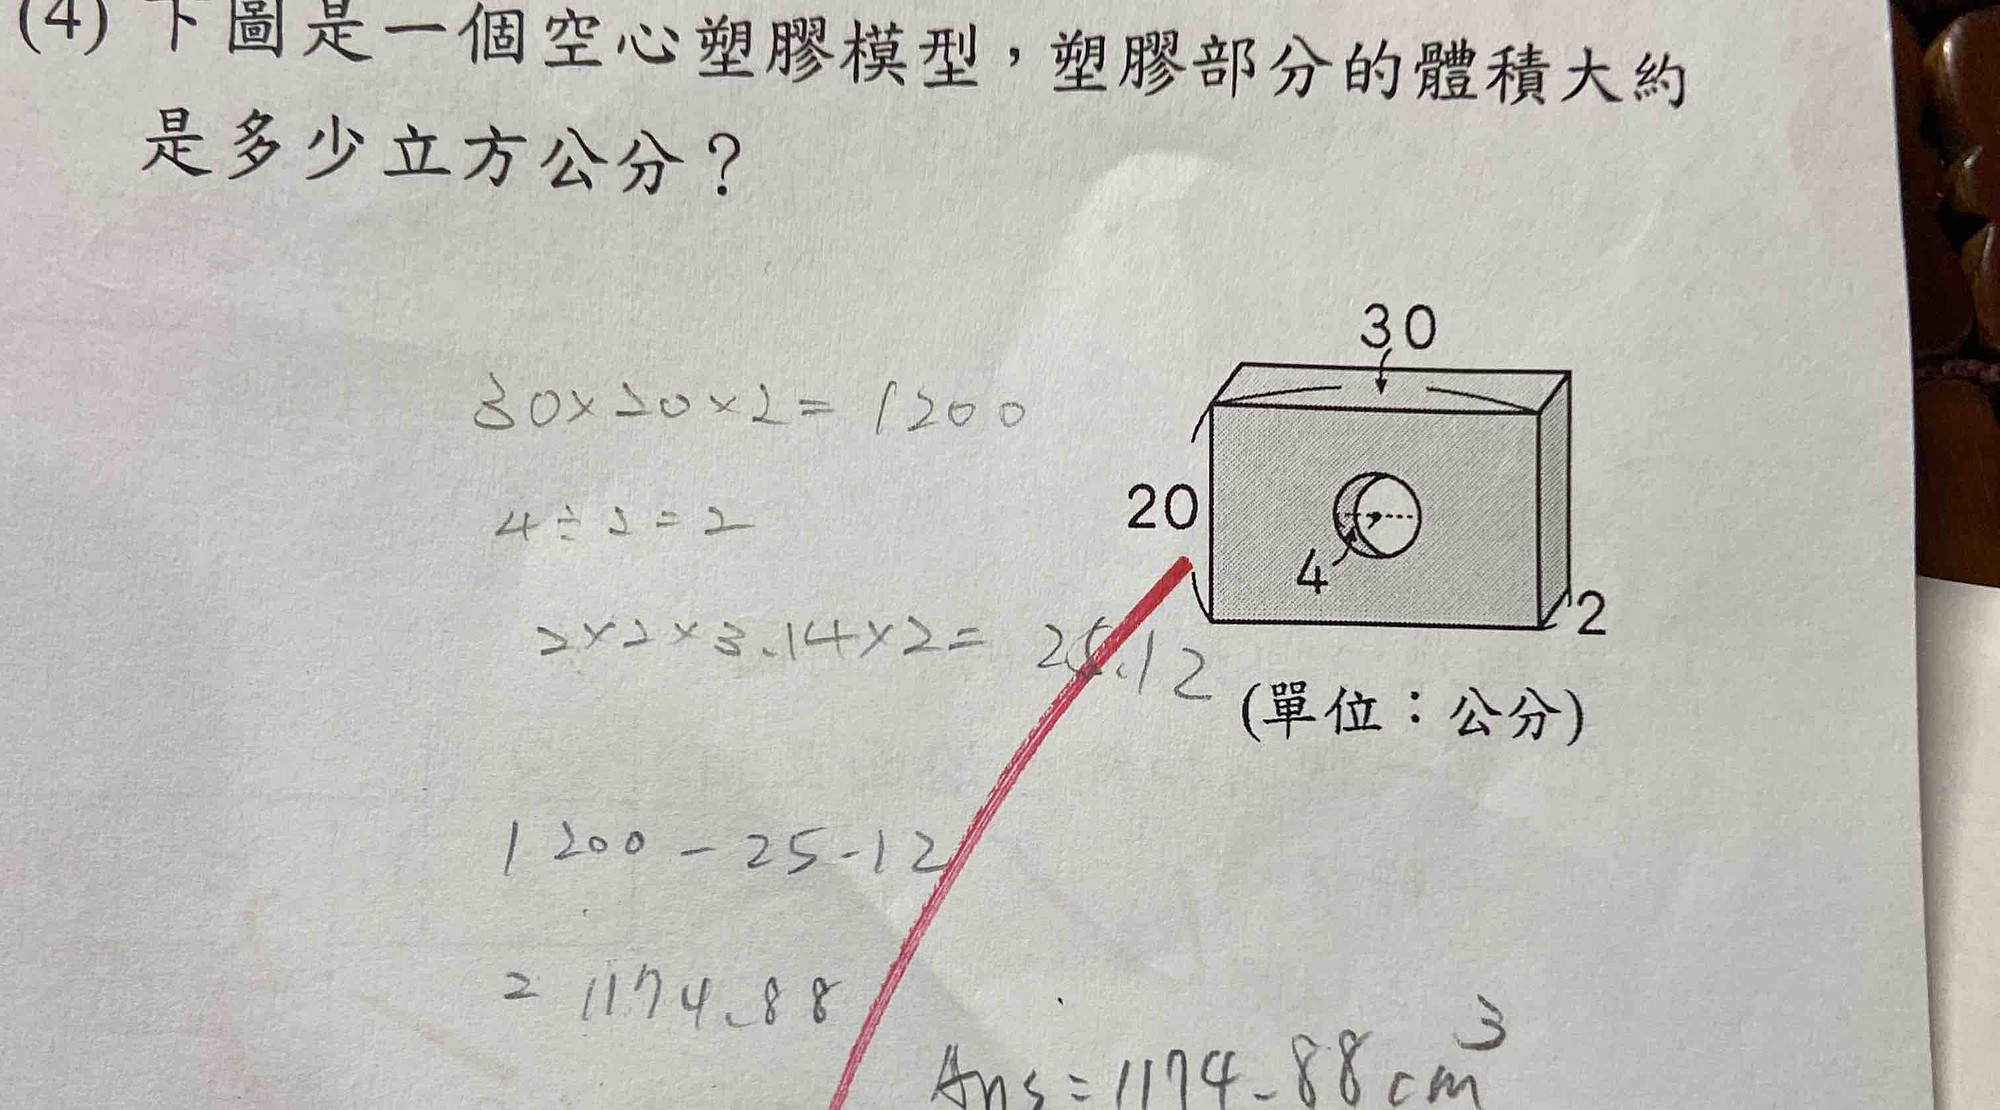 (4) 下圖是一個空心塑膠模型，塑膠部分的體積大約
是多少立方公分？
30
30×20×2=1200
20
4÷2=2
4
2
2×2×3.14×2=25.12
(單位：公分)
1200-25.12
=1174.88
Ans=1174.88cm³